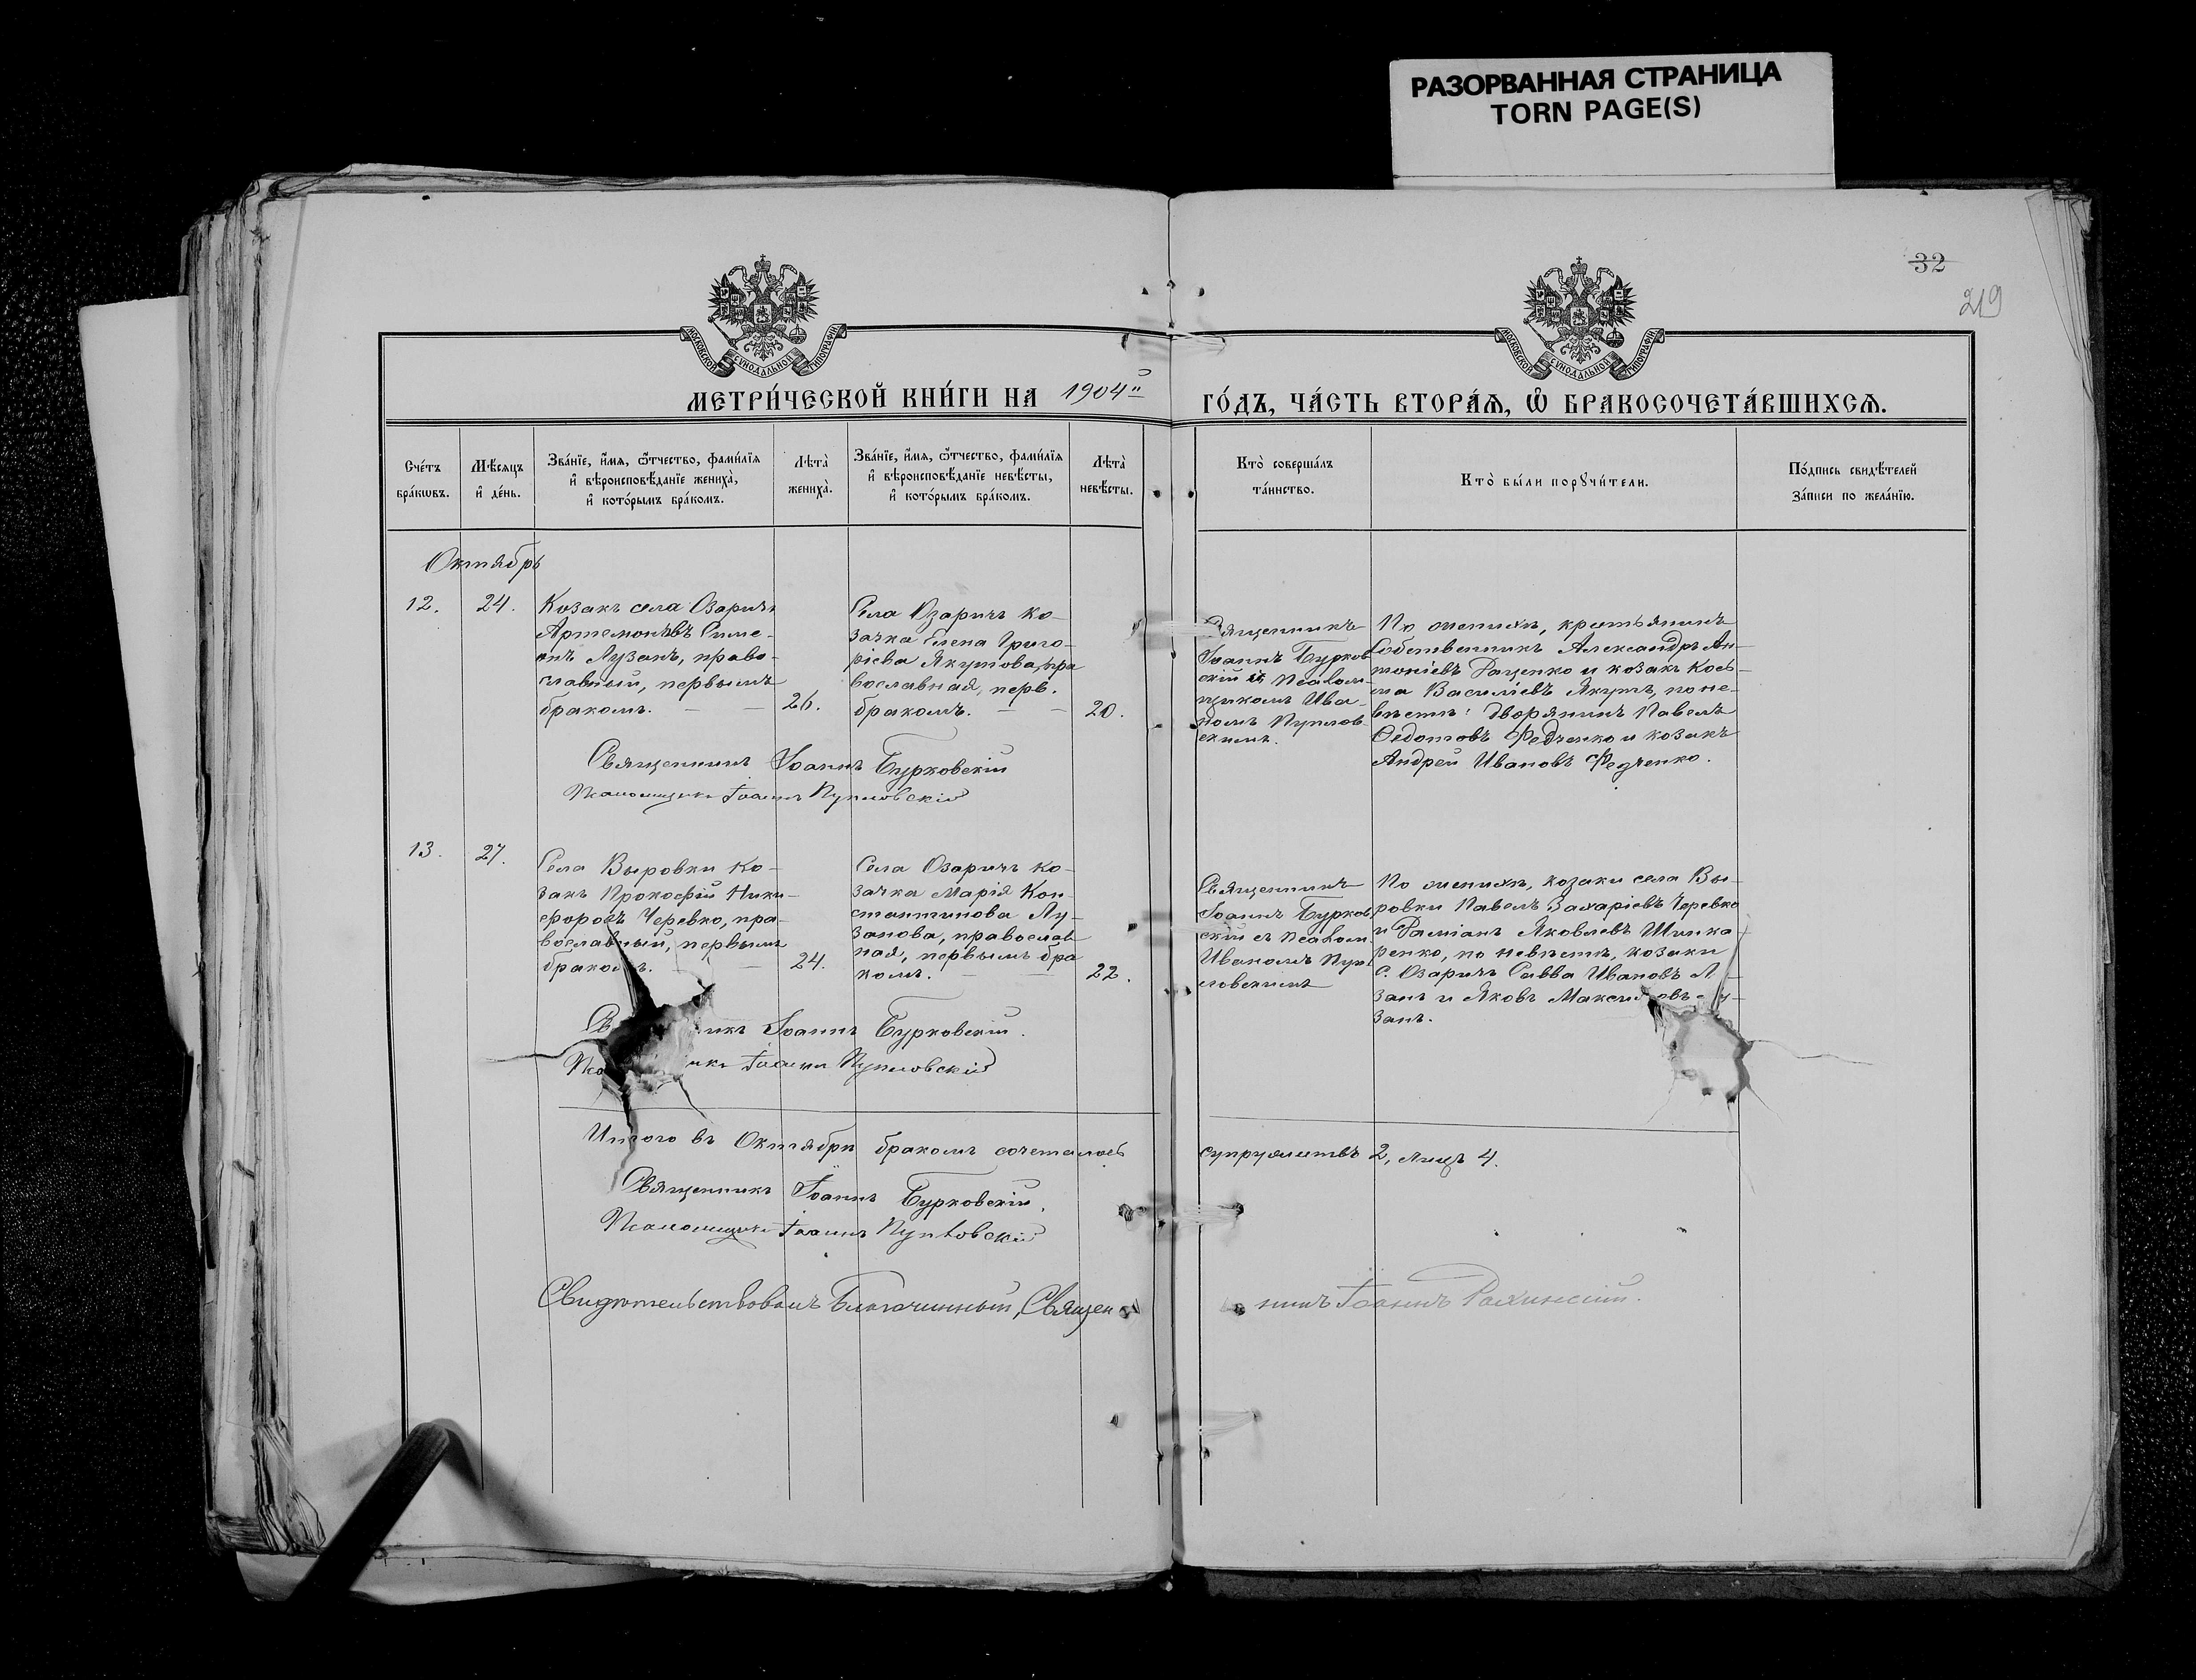 РАЗОРВАННАЯ СТРАНИЦА
TORN PAGE(S)
32
219
МОСКОВСКОЙ СУНОДАЛЬНОЙ ТИПОГРАФИИ
МОСКОВСКОЙ СУНОДАЛЬНОЙ ТИПОГРАФИИ
МЕТРИ́ЧЕСКОЙ КНИ́ГИ НА 1904й ГО́ДЪ, ЧА́СТЬ ВТОРА́Ѧ, Ѽ БРАКОСОЧЕТА́ВШИХСѦ.
Сче́тъ
бра́кѡвъ.
Мѣ́сѧцъ
и҆ де́нь.
Зва́нїе, и҆́мѧ, ѻ҆́тчество, фами́лїѧ
и҆ вѣроисповѣ́данїе жениха̀,
и҆ кото́рымъ бра́комъ.
Лѣта̀
жениха̀.
Зва́нїе, и҆́мѧ, ѻ҆́тчество, фами́лїѧ
и҆ вѣроисповѣ́данїе невѣ́сты,
и҆ кото́рымъ бра́комъ.
Лѣта̀
невѣ́сты.
Кто̀ соверша́лъ
та́инство.
Кто̀ бы́ли порꙋчи́тели.
По́дпись свидѣ́телей
за́писи по жела́нїю.
Октябрь
12.
24.
Козакъ села Озаричъ
Артемонъ Симе-
онъ Лузанъ, право-
славный, первымъ
бракомъ. — —
26.
Села Озаричъ ко-
зачка Елена Григо-
ріева Якутова, пра
вославная, перв.
бракомъ. — —
20.
Священникъ
Іоаннъ Бурков
скій съ Псалом-
щикомъ Ива-
номъ Пуплов-
скимъ.
По женихѣ, крестьянинъ
собственникъ Александръ Ан-
тоніевъ Раценко и козакъ Kось-
ма Василіевъ Якутъ, по не-
вѣстѣ: дворянинъ Павелъ
Ѳедотовъ Федченко и козакъ
Андрей Ивановъ Федченко.
Священникъ Іоаннъ Бурковскій
Псаломщикъ Іоаннъ Пупловскій
13.
27.
Села Выровки ко-
закъ Прокофій Ники-
форовъ Черевко, пра-
вославный, первымъ
бракомъ. — —
24.
Села Озаричъ ко-
зачка Марія Кон-
стантинова Лу-
занова, православ
ная, первымъ бра
комъ. — —
22.
Священникъ
Іоаннъ Бурков
скій съ Псалом.
Иваномъ Пуп
ловскимъ
По женихѣ, козаки села Вы-
ровки Павелъ Захаріевъ Черевко
и Даміанъ Яковлевъ Шинка
ренко, по невѣстѣ, козаки
с. Озаричъ Савва Ивановъ Л-
занъ и Яковъ Макси овъ у-
занъ.
Св икъ Іоаннъ Бурковскій.
Пса икъ Іоаннъ Пупловскій
Итого въ Октябрѣ бракомъ сочеталось супружествъ 2, лицъ 4.
Священникъ Іоаннъ Бурковскій.
Псаломщикъ Іоаннъ Пупловскій
Свидѣтельствовалъ Благочинный, Священ никъ Іоаннъ